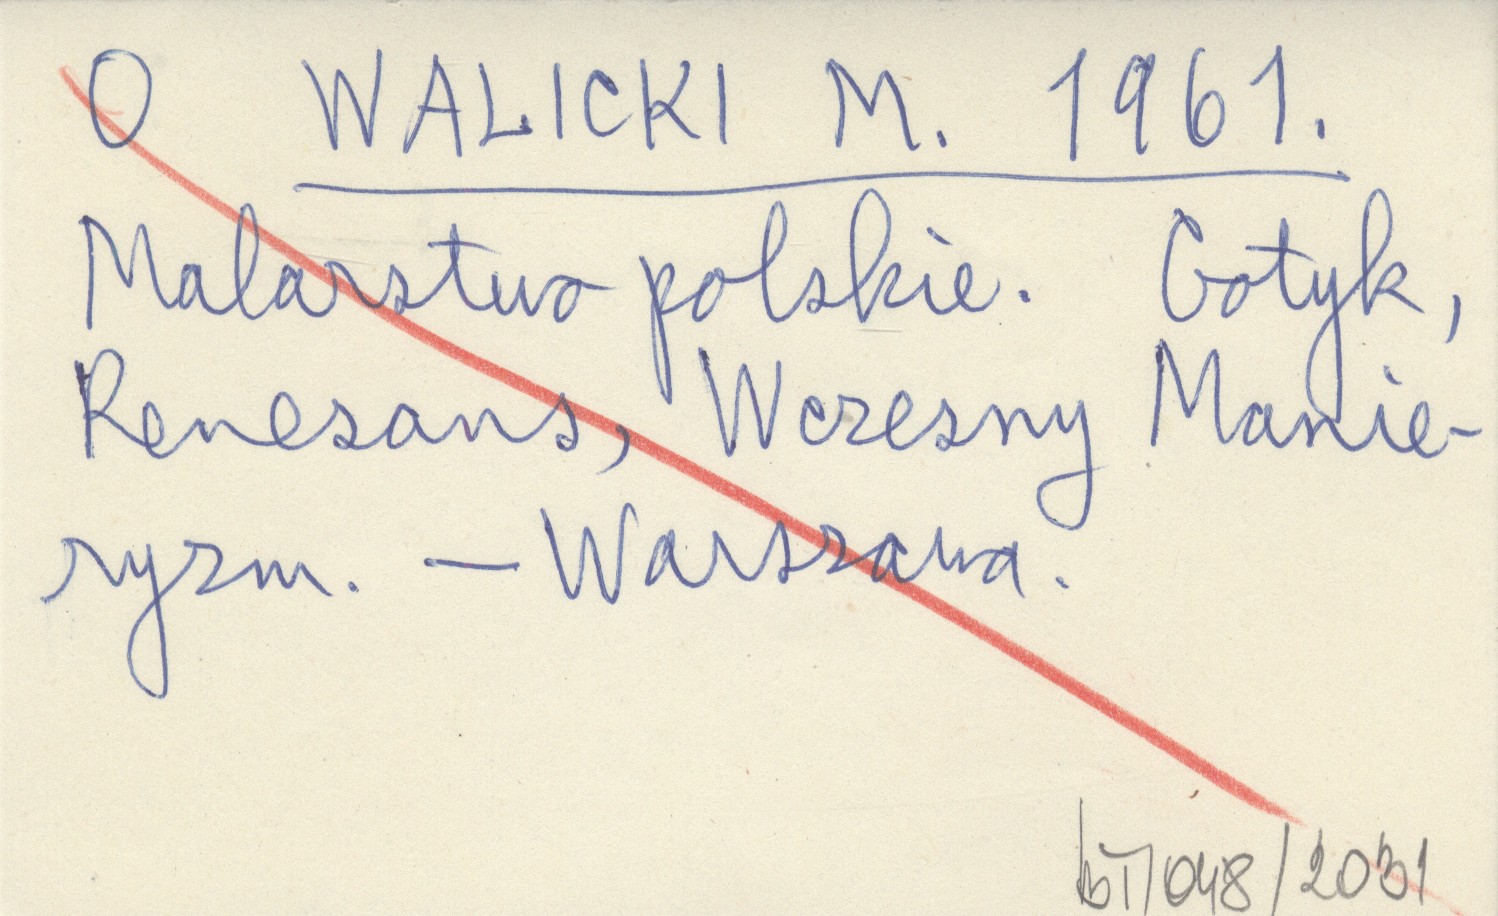 O WALICKI M. 1961.
Malarstwo polskie. Gotyk,
Renesans, Wczesny Manie-
ryzm. — Warszawa.
/048/2031